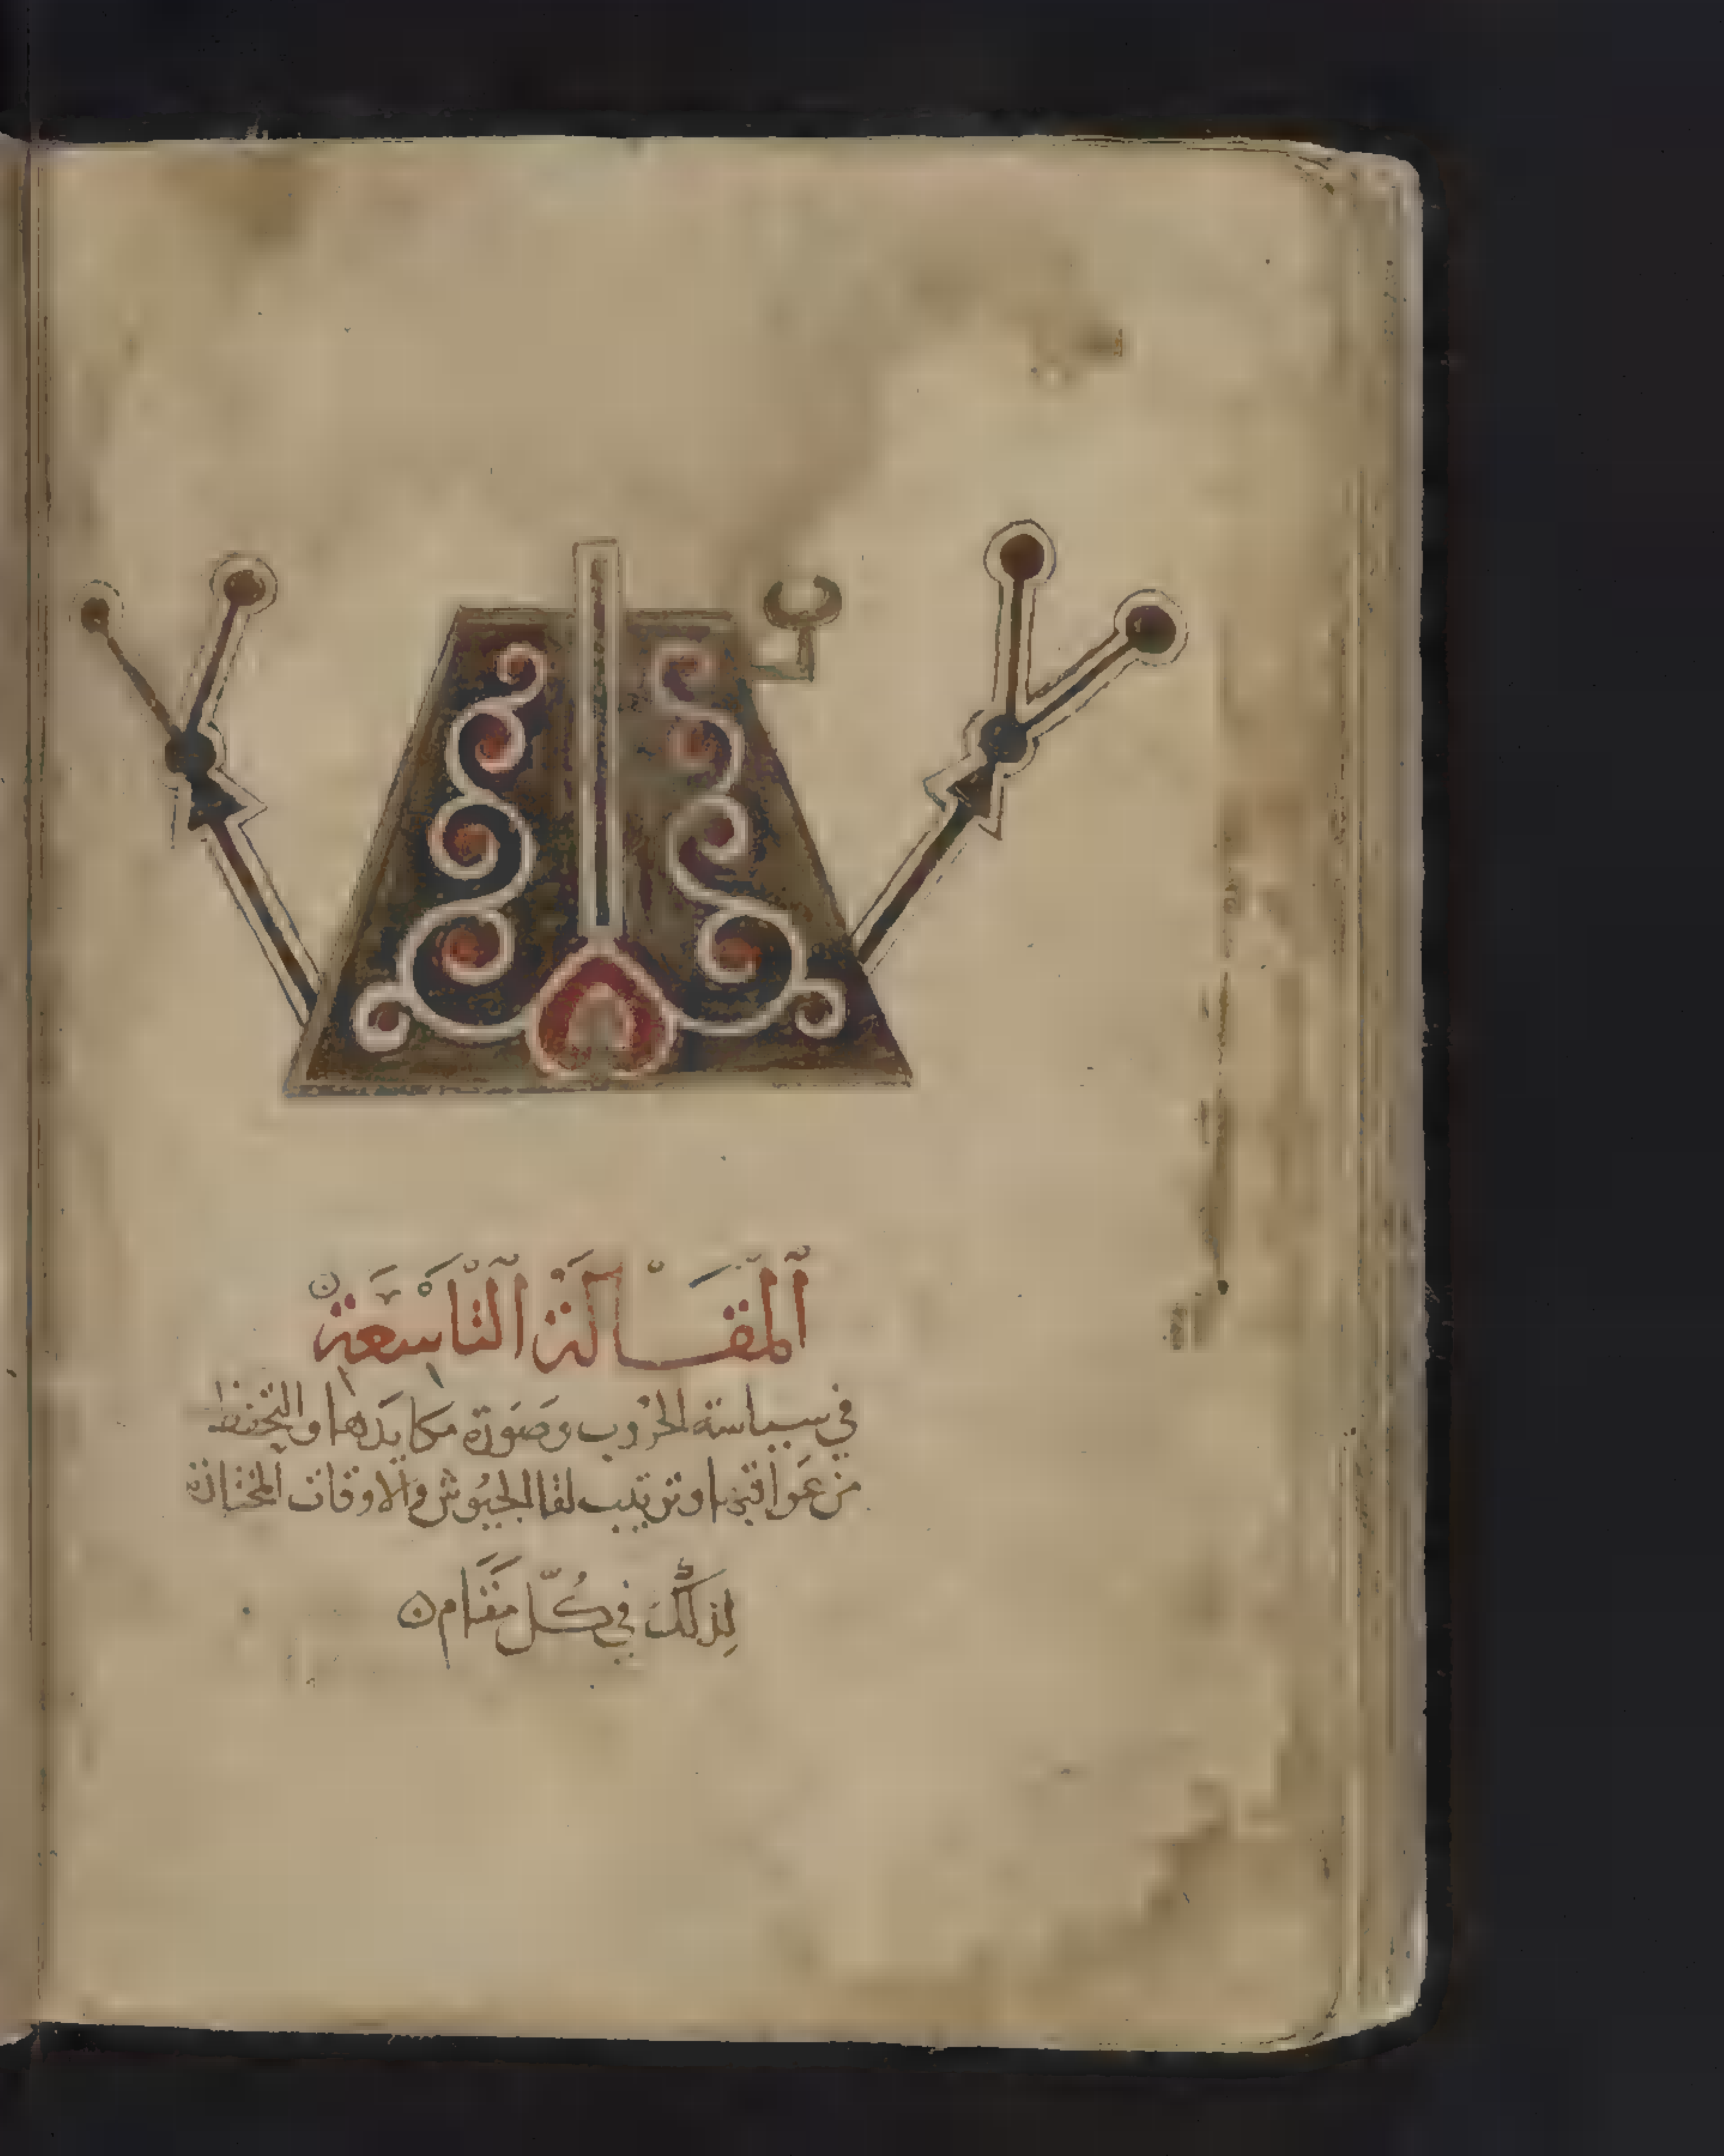 المَقَالَةُ التَّاسِعَة
في سياسة الحروب وصورة مكايدها والتحفظ
من عواقبها وترتيب لقا الجيوش والاوقات المختارة
لِذلكَ في كُلّ مَقَام